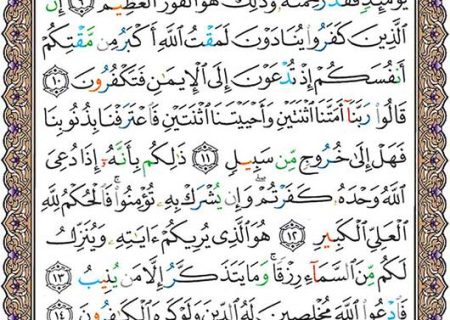 يَوْمَئِذٍ فَقَدْ رَحِمْتَهُ وَذَٰلِكَ هُوَ الْفَوْزُ الْعَظِيمُ ٩ إِنَّ
الَّذِينَ كَفَرُوا يُنَادَوْنَ لَمَقْتُ اللَّهِ أَكْبَرُ مِن مَّقْتِكُمْ
أَنفُسَكُمْ إِذْ تُدْعَوْنَ إِلَى الْإِيمَٰنِ فَتَكْفُرُونَ ١٠
قَالُوا رَبَّنَا أَمَتَّنَا اثْنَتَيْنِ وَأَحْيَيْتَنَا اثْنَتَيْنِ فَاعْتَرَفْنَا بِذُنُوبِنَا
فَهَلْ إِلَىٰ خُرُوجٍ مِّن سَبِيلٍ ١١ ذَٰلِكُم بِأَنَّهُ إِذَا دُعِيَ
اللَّهُ وَحْدَهُ كَفَرْتُمْ ۖ وَإِن يُشْرَكْ بِهِ تُؤْمِنُوا ۚ فَالْحُكْمُ لِلَّهِ
الْعَلِيِّ الْكَبِيرِ ١٢ هُوَ الَّذِي يُرِيكُمْ ءَايَٰتِهِ وَيُنَزِّلُ
لَكُم مِّنَ السَّمَاءِ رِزْقًا ۚ وَمَا يَتَذَكَّرُ إِلَّا مَن يُنِيبُ ١٣
فَادْعُوا اللَّهَ مُخْلِصِينَ لَهُ الدِّينَ وَلَوْ كَرِهَ الْكَٰفِرُونَ ١٤